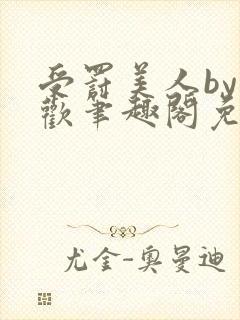 受罸美人by
歡笔趣阁免
尤金-奥曼迪